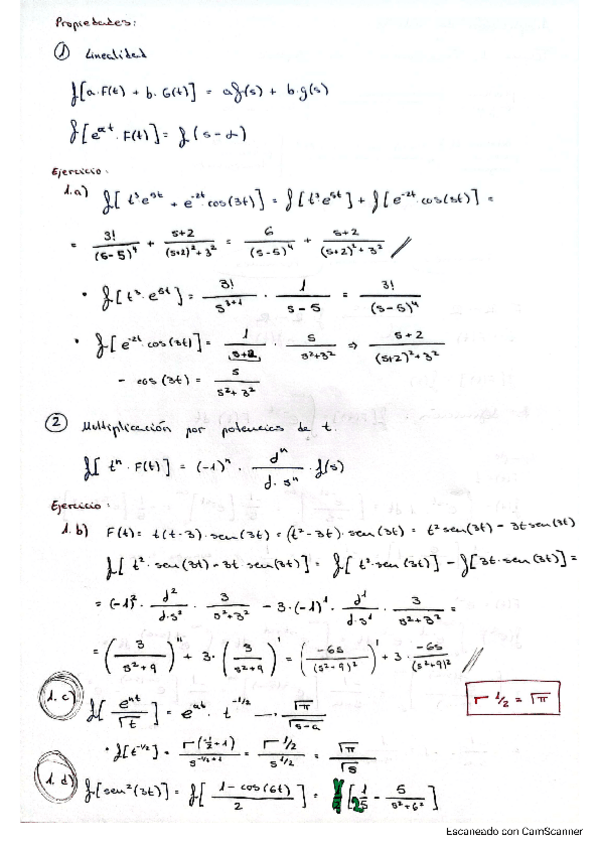 Propiedades:
① Linealidad
ℒ[a·F(t) + b·G(t)] = af(s) + b·g(s)
ℒ[e^αt · F(t)] = f(s-α)
Ejercicio:
1.a) ℒ[t³e^5t + e^-2t·cos(3t)] = ℒ[t³e^5t] + ℒ[e^-2t·cos(3t)] =
= 3!/(s-5)⁴ + s+2/(s+2)²+3² = 6/(s-5)⁴ + s+2/(s+2)²+3² //
• ℒ[t³·e^5t] = 3!/s^3+1 · 1/s-5 = 3!/(s-5)⁴
• ℒ[e^-2t·cos(3t)] = 1/s+2 · s/s²+3² ⇒ s+2/(s+2)²+3²
- cos(3t) = s/s²+3²
② Multiplicación por potencias de t.
ℒ[tⁿ·F(t)] = (-1)ⁿ · dⁿ/d·sⁿ · f(s)
Ejercicio:
1.b) F(t) = t(t-3)·sen(3t) = (t²-3t)·sen(3t) = t²sen(3t) - 3tsen(3t)
ℒ[t²·sen(3t)-3t·sen(3t)] = ℒ[t²sen(3t)] - ℒ[3t·sen(3t)] =
= (-1)²· d²/d·s² · 3/s²+3² - 3·(-1)¹· d¹/d·s¹ · 3/s²+3² =
= (3/s²+9)'' + 3·(3/s²+9)' = (-6s/(s²-9)²)' + 3·-6s/(s²+9)² //
1.c) ℒ[e^at/√t] = e^at · t^-1/2 —· √π/√s-a
Γ 1/2 = √π
• ℒ[t^-1/2] = Γ(-1/2+1)/s^-1/2+1 = Γ1/2/s^1/2 = √π/√s
1.d) ℒ[sen²(3t)] = ℒ[1-cos(6t)/2] = 1/2[1/s - s/s²+6²]
Escaneado con CamScanner